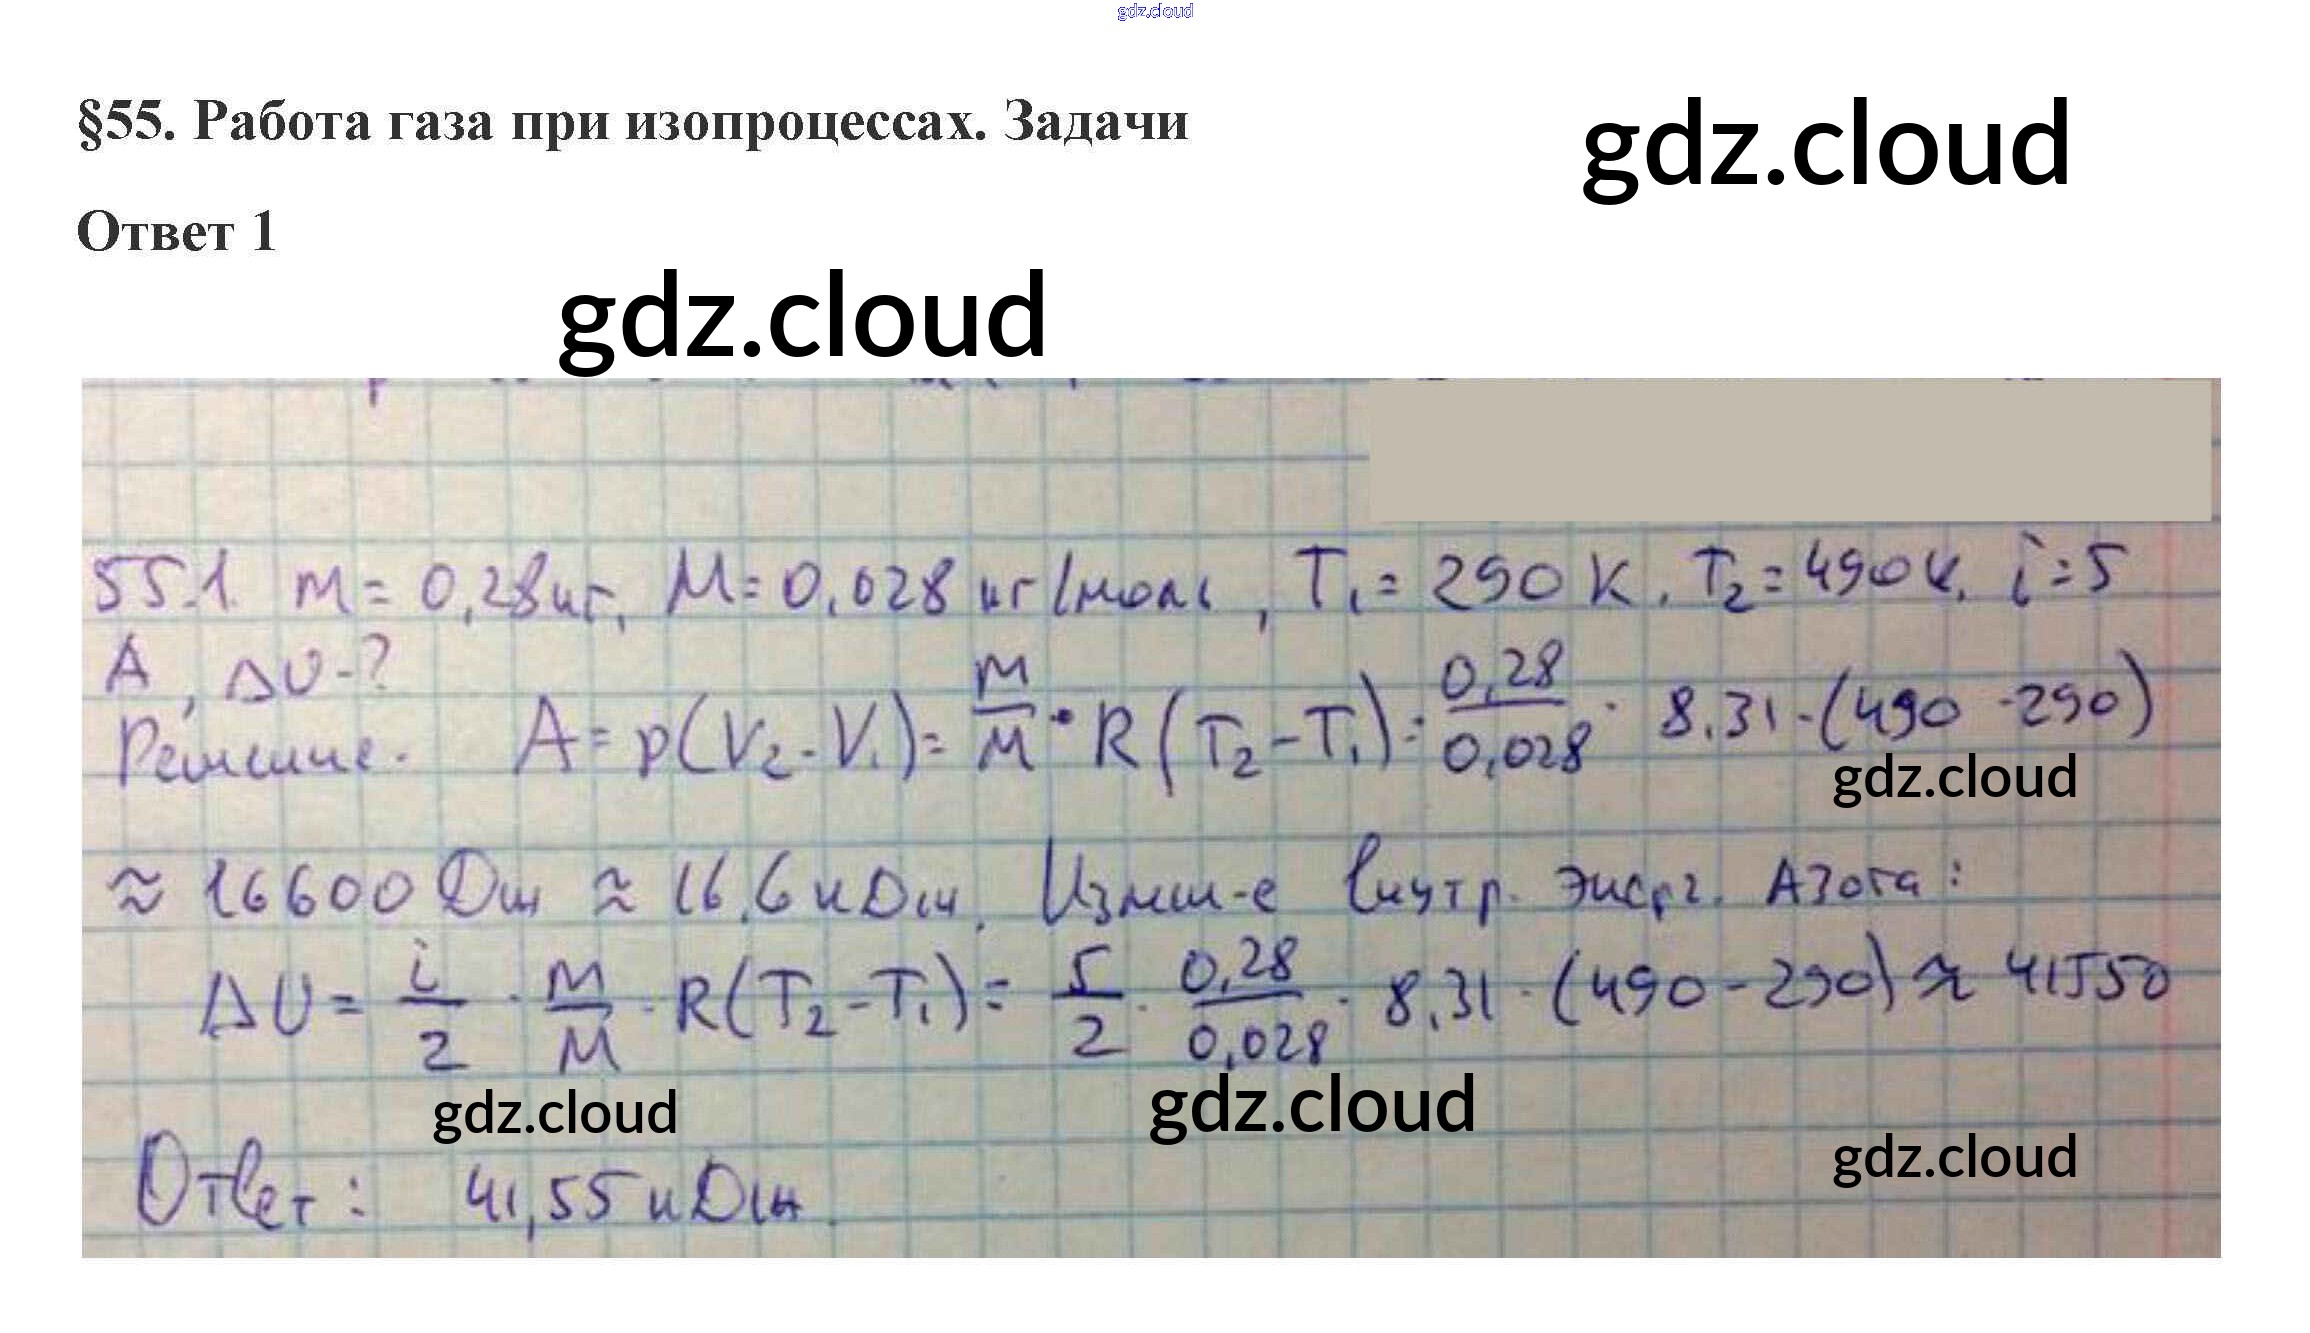 gdz.cloud
§55. Работа газа при изопроцессах. Задачи
gdz.cloud
Ответ 1
gdz.cloud
55.1. m = 0,28 кг, M = 0,028 кг/моль, T₁ = 290 K, T₂ = 490 K, i = 5
A, ΔU - ?
Решение. A = p(V₂ - V₁) = m/M · R(T₂ - T₁) = 0,28/0,028 · 8,31 · (490 - 290)
gdz.cloud
≈ 16600 Дж ≈ 16,6 кДж. Измен-е внутр. энерг. Азота:
ΔU = i/2 · m/M · R(T₂ - T₁) = 5/2 · 0,28/0,028 · 8,31 · (490 - 290) ≈ 41550
gdz.cloud
gdz.cloud
gdz.cloud
Ответ: 41,55 кДж.